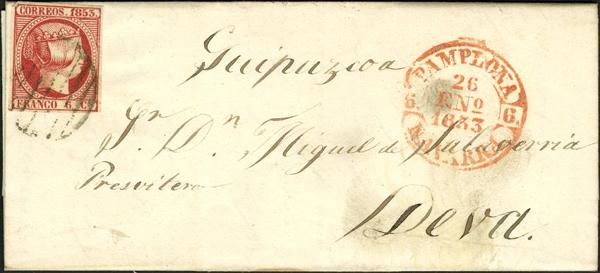 CORREOS. 1853.
FRANCO 6 Cs
Guipuzcoa
PAMPLONA
26
ENº
1853
6. 6.
NAVARRA
Sr. Dn. Miguel de
Presvitero
Deva.